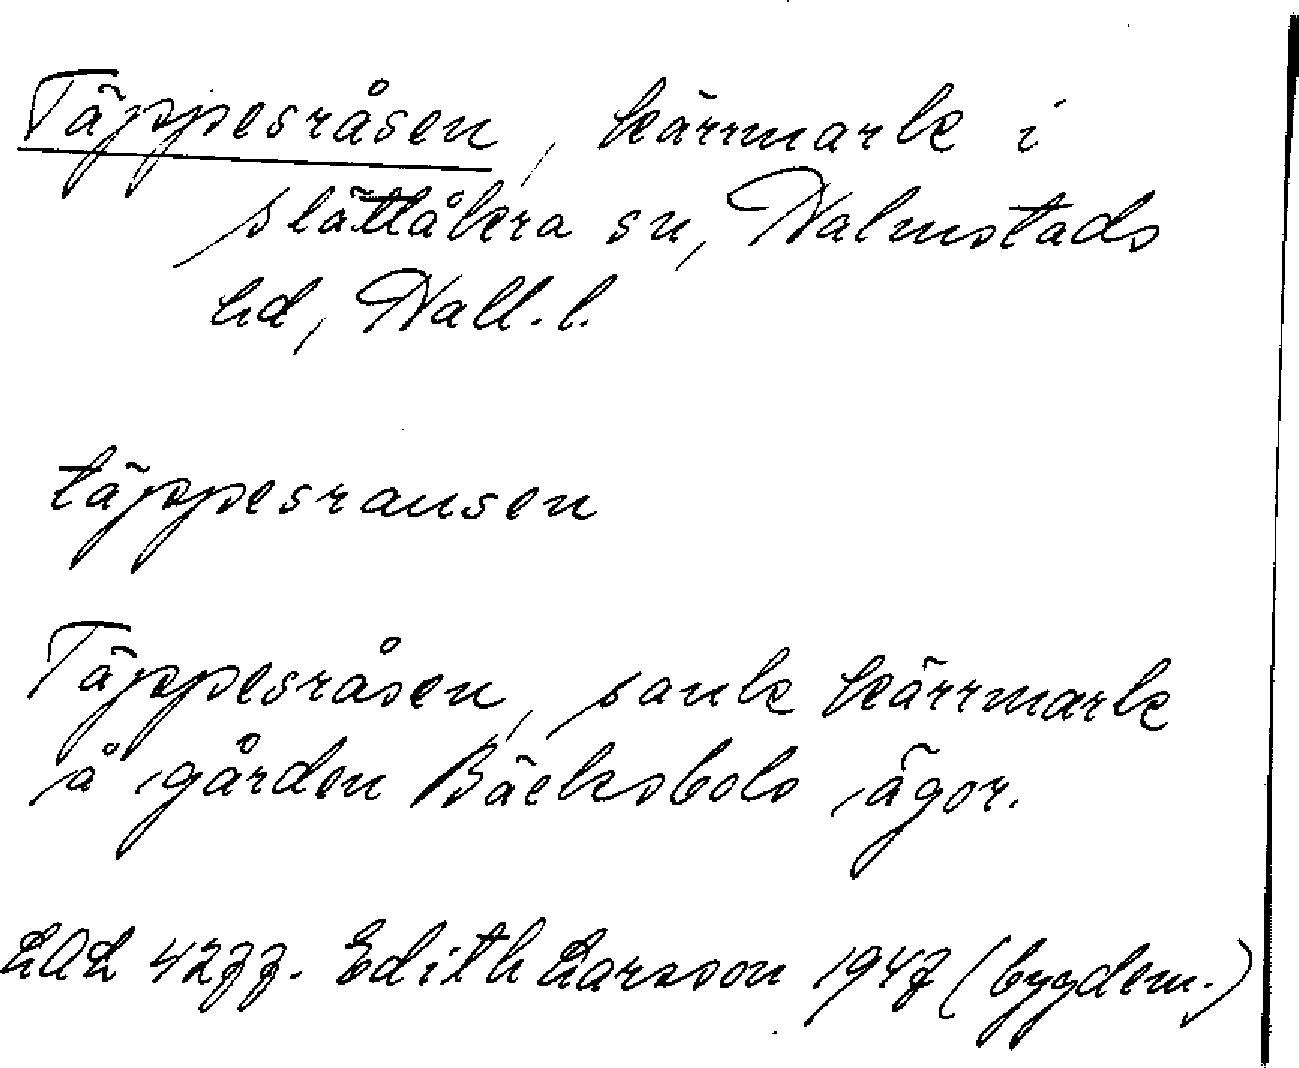 Täppesråsen, kärrmark i
Slättåkra sn, Halmstads
hd, Hall. l.
täppesrausen
Täppesråsen, sank kärrmark
å gården Bäcksbols ägor.
LAL 4277. Edith Larsson 1947 (bygdem.)